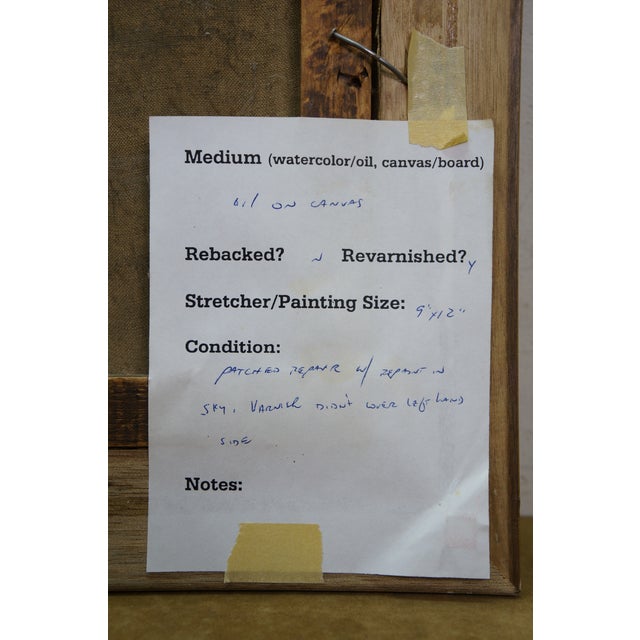 Medium (watercolor/oil, canvas/board)
oil on canvas
Rebacked? N Revarnished? Y
Stretcher/Painting Size: 9" x 12"
Condition:
PATCHED REPAIR w/ REPAINT IN
SKY. VARNISH DIDN'T COVER LEFT HAND
SIDE
Notes: